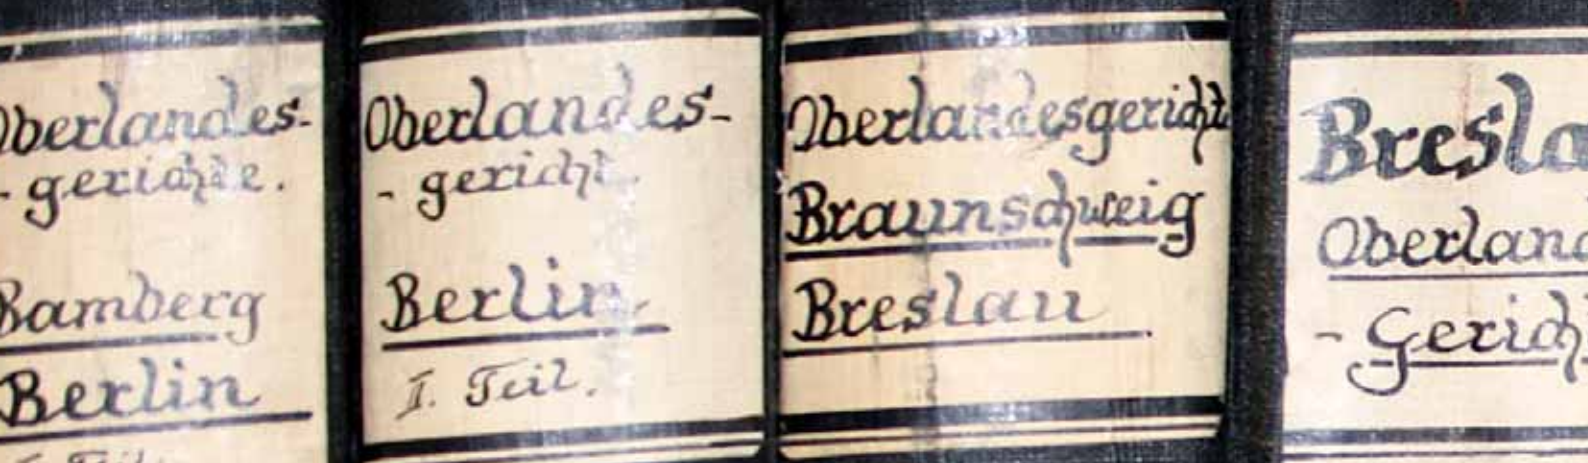 Oberlandes-
-gerichte.
Bamberg
Berlin
I. Teil.
Oberlandes-
-gericht.
Berlin.
I. Teil.
Oberlandesgericht
Braunschweig
Breslau.
Bresla
Oberland
-Gerich